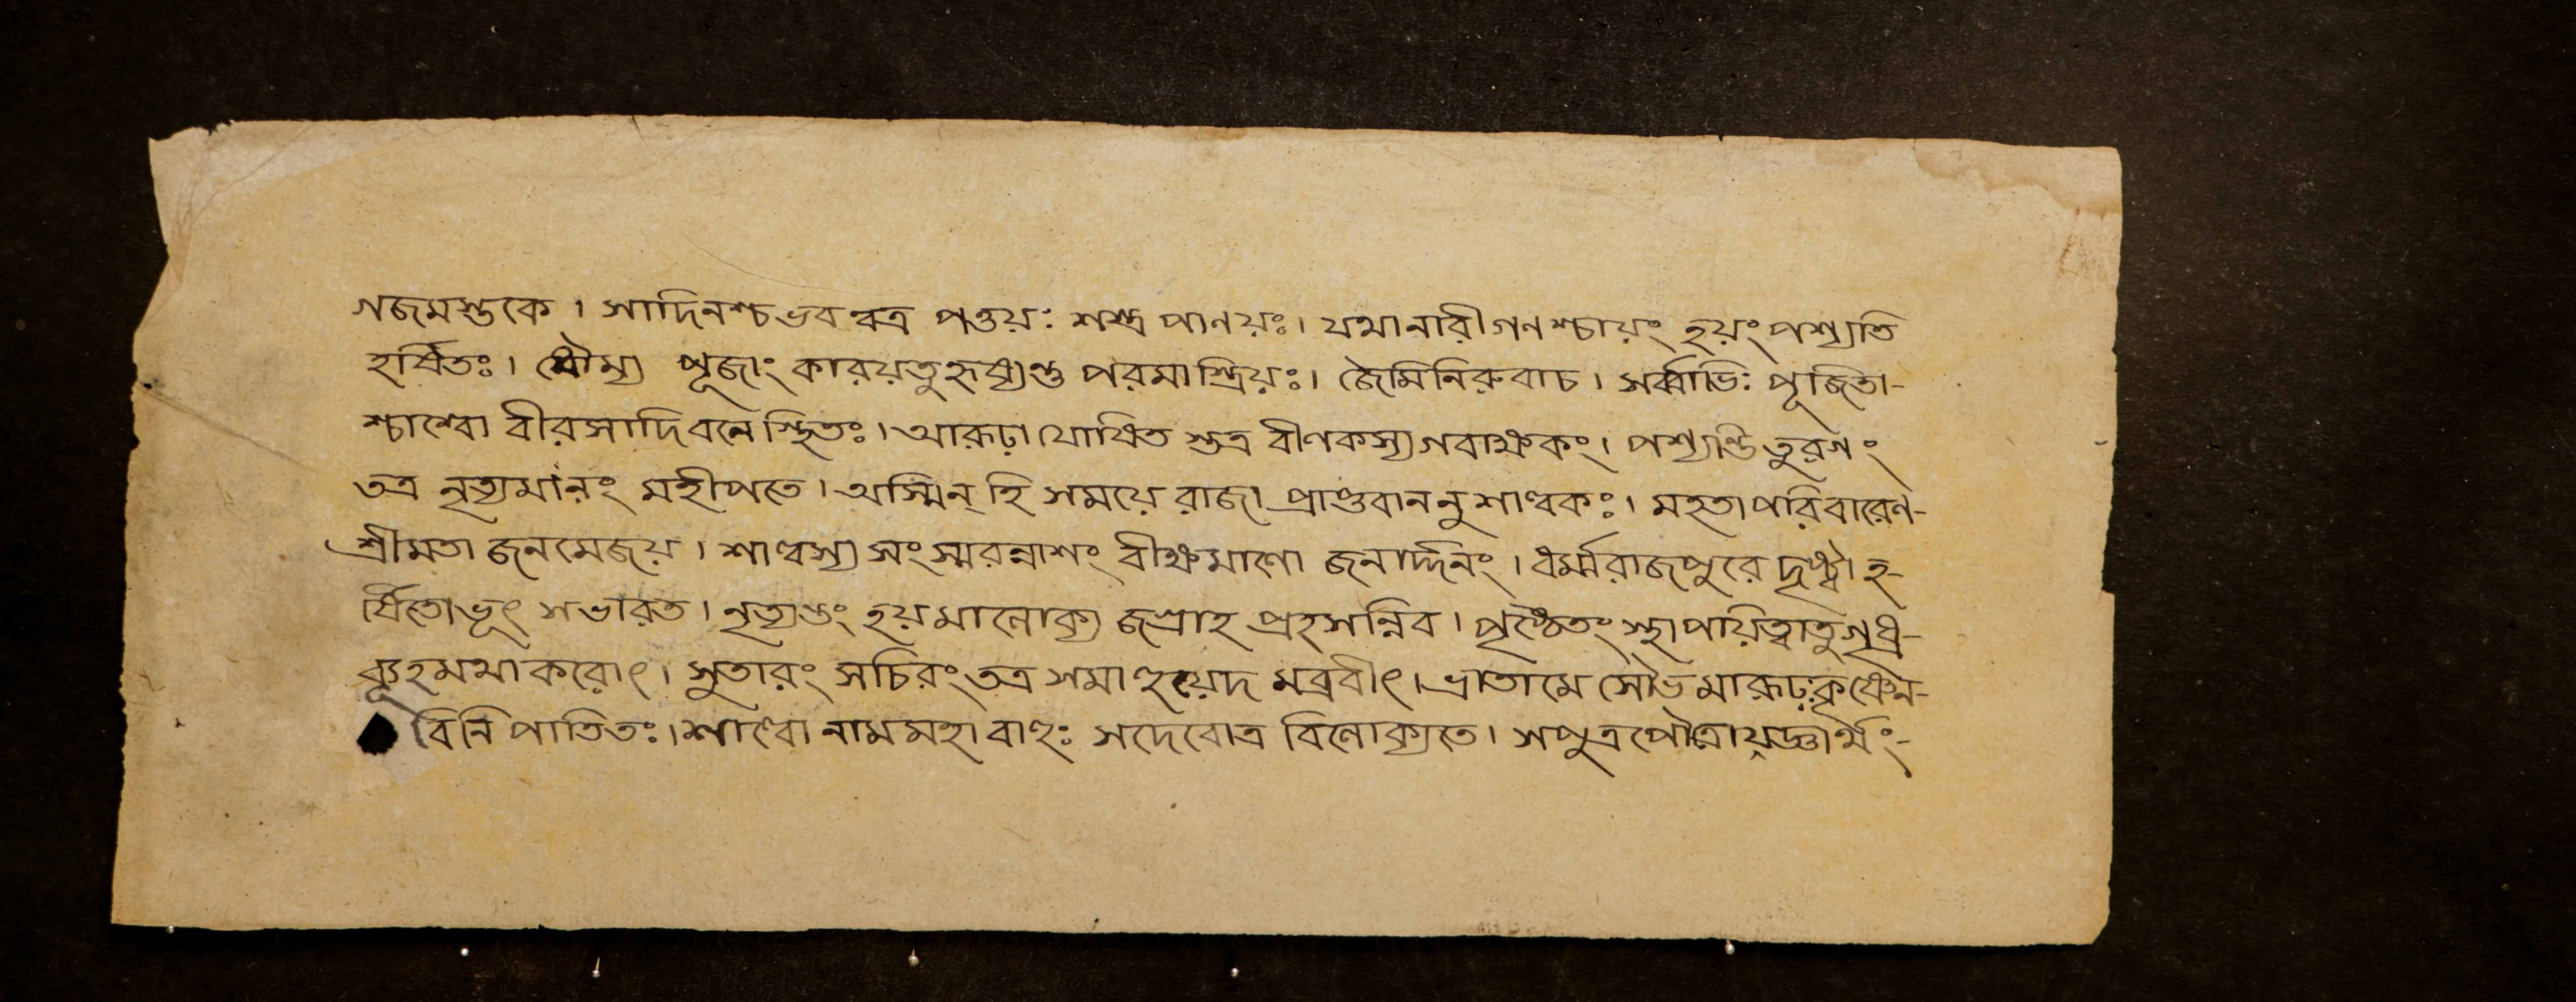 গজমস্তকে । সাদিনশ্চ ভবন্বত্র পত্তয়ঃ শস্ত্র পাণয়ঃ । যথা নারীগণশ্চায়ং হয়ং পশ্যতি
হর্ষিতঃ । ধৌম্য পূজাং কারয়তু হৃষ্যন্তু পরমাস্ত্রিয়ঃ । জৈমিনিরুবাচ । সর্ব্বাভিঃ পূজিতা-
শ্চাশ্বো বীরসাদিবলে স্থিতঃ । আরূঢ়া যোষিত স্তত্র বীণকস্য গবাক্ষকং । পশ্যন্তি তুরগং
তত্র নৃত্যমানং মহীপতে । অস্মিন্ হি সময়ে রাজা প্রাপ্তবাননুশাল্বকঃ । মহতা পরিবারেণ-
শ্রীমতা জনমেজয় । শাল্বস্য সংস্মরন্নাশং বীক্ষমাণো জনার্দ্দনং । ধর্ম্মরাজপুরে দৃষ্ট্বা হ-
র্ষিতোভূৎ সভারত । নৃত্যন্তং হয়মালোক্য জগ্রাহ প্রহসন্নিব । পৃষ্ঠৈতং স্থাপয়িত্বাতু গৃধ্র-
ব্যূহমথাকরোৎ । সুতারং সচিরং তত্র সমাহুয়েদ মব্রবীৎ । ভ্রাতা মে সৌভমারূঢ়ঃ কৃষ্ণেন-
বিনিপাতিতঃ । শাল্বো নাম মহাবাহুঃ সদেবোত্র বিলোক্যতে । সপুত্রপৌত্রো